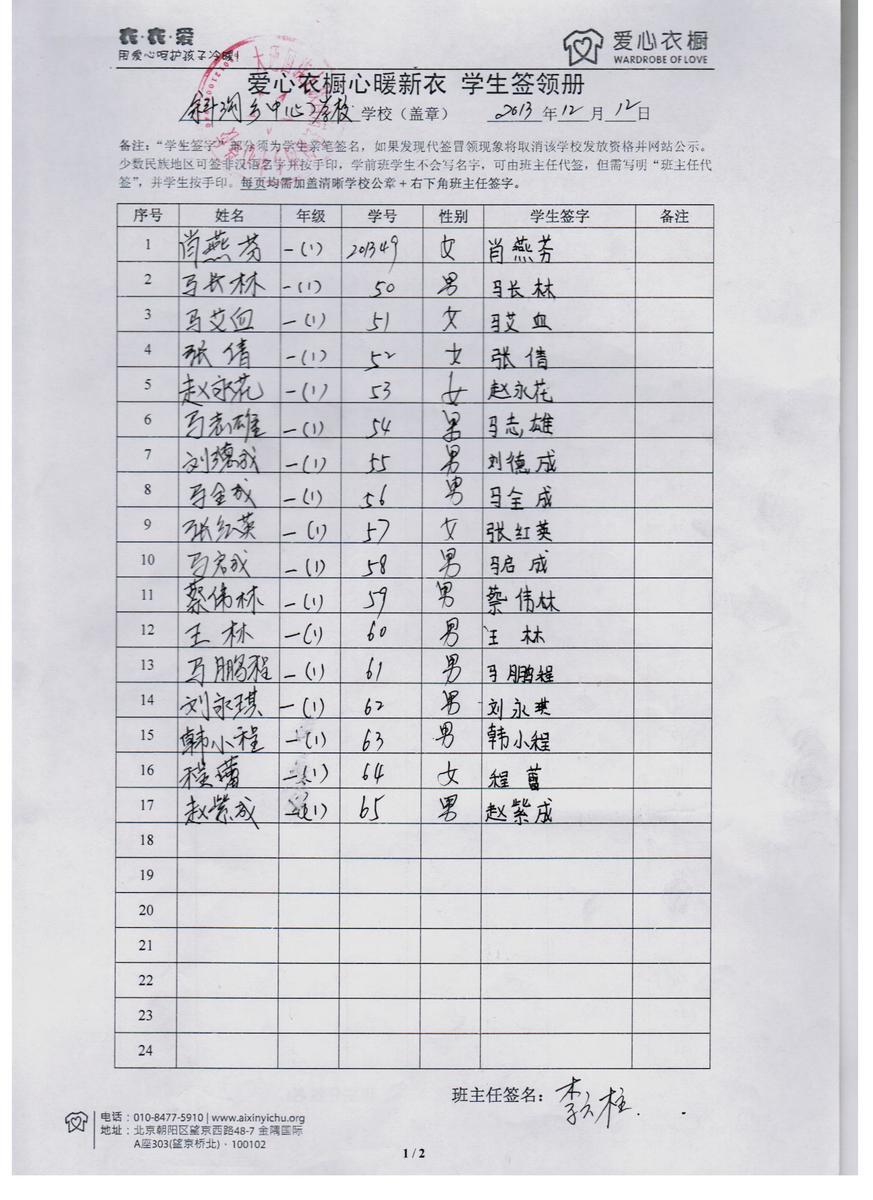 衣·衣·爱
用爱心呵护孩子冷暖!
爱心衣橱
WARDROBE OF LOVE
爱心衣橱心暖新衣 学生签领册
斜沟乡中心学校 学校（盖章） 2013 年 12 月 12 日
备注：“学生签字”部分须为学生亲笔签名，如果发现代签冒领现象将取消该学校发放资格并网站公示。
少数民族地区可签非汉语名字并按手印，学前班学生不会写名字，可由班主任代签，但需写明“班主任代
签”，并学生按手印。每页均需加盖清晰学校公章+右下角班主任签字。
序号 姓名 年级 学号 性别 学生签字 备注
1 肖燕芳 一(1) 201349 女 肖燕芳
2 马长林 一(1) 50 男 马长林
3 马艾血 一(1) 51 女 马艾血
4 张倩 一(1) 52 女 张倩
5 赵永花 一(1) 53 女 赵永花
6 马志雄 一(1) 54 男 马志雄
7 刘德成 一(1) 55 男 刘德成
8 马全成 一(1) 56 男 马全成
9 张红英 一(1) 57 女 张红英
10 马启成 一(1) 58 男 马启成
11 蔡伟林 一(1) 59 男 蔡伟林
12 王林 一(1) 60 男 王林
13 马鹏程 一(1) 61 男 马鹏程
14 刘永琪 一(1) 62 男 刘永琪
15 韩小程 一(1) 63 男 韩小程
16 程蕾 一(1) 64 女 程蕾
17 赵紫成 一(1) 65 男 赵紫成
18
19
20
21
22
23
24
班主任签名：
电话：010-8477-5910 | www.aixinyichu.org
地址：北京朝阳区望京西路48-7 金隅国际
A座303(望京桥北)·100102
1 / 2